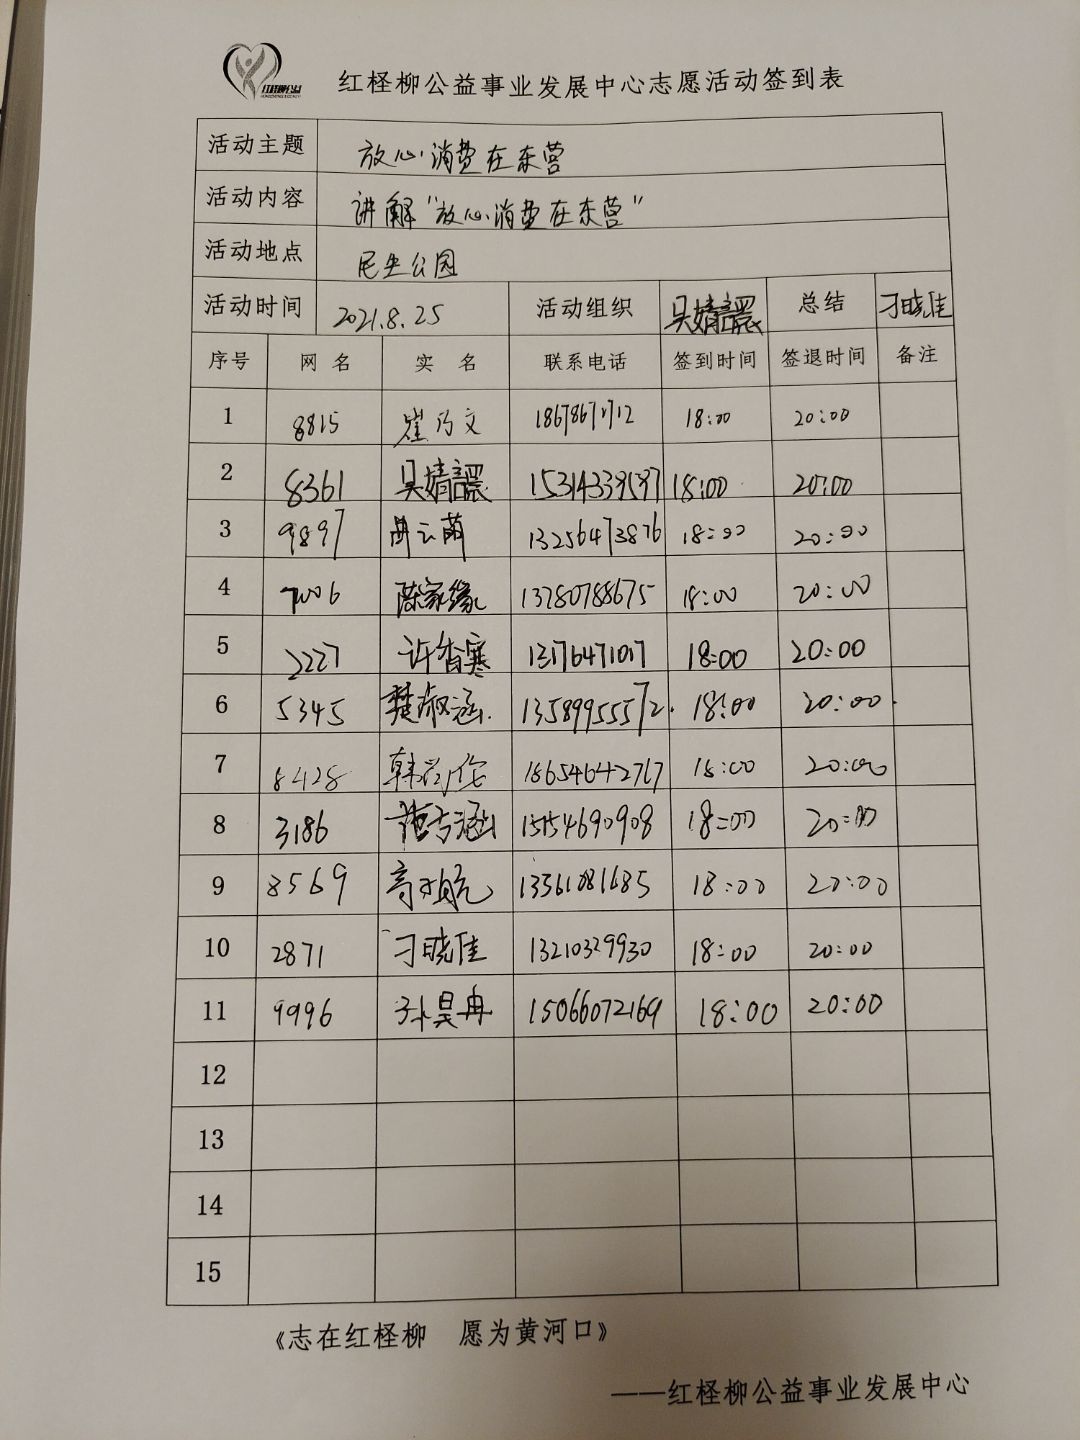 红柽柳公益
红柽柳公益事业发展中心志愿活动签到表
活动主题 放心消费在东营
活动内容 讲解“放心消费在东营”
活动地点 民生公园
活动时间 2021.8.25 活动组织 吴婧 总结 刁晓佳
序号 网名 实名 联系电话 签到时间 签退时间 备注
1 8815 崔乃文 18678671712 18:00 20:00
2 8361 吴婧 15314339597 18:00 20:00
3 9897 云萌 13256473876 18:00 20:00
4 7006 陈家缘 13780788675 18:00 20:00
5 2227 许香寒 13176471017 18:00 20:00
6 5345 楚淑涵. 13589955572. 18:00 20:00.
7 8428 韩 18654642767 18:00 20:00
8 3186 涵 15154690908 18:00 20:00
9 8569 高 航 13561081685 18:00 20:00
10 2871 刁晓佳 13210329930 18:00 20:00
11 9996 孙昊冉 15066072169 18:00 20:00
12
13
14
15
《志在红柽柳 愿为黄河口》
——红柽柳公益事业发展中心